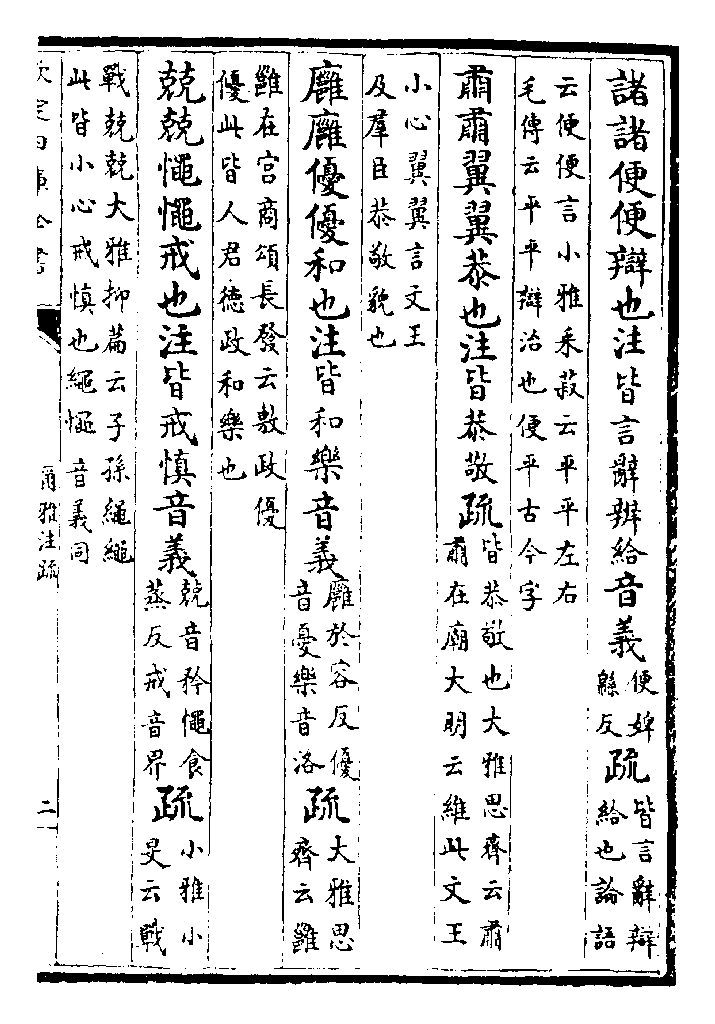 諸諸便便辯也注皆言辭辨給音義便婢
緜反疏皆言辭辯
給也論語
云便便言小雅采菽云平平左右
毛傳云平平辯治也便平古今字
肅肅翼翼恭也注皆恭敬疏皆恭敬也大雅思齊云肅
肅在廟大明云維此文王
小心翼翼言文王
及羣臣恭敬貌也
廱廱優優和也注皆和樂音義廱於容反優
音憂樂音洛疏大雅思
齊云雝
雝在宫商頌長發云敷政優
優此皆人君德政和樂也
兢兢憴憴戒也注皆戒慎音義兢音矜憴食
蒸反戒音界疏小雅小
旻云戰
戰兢兢大雅抑篇云子孫繩繩
此皆小心戒慎也繩憴音義同
欽定四庫全書
爾雅注疏
二